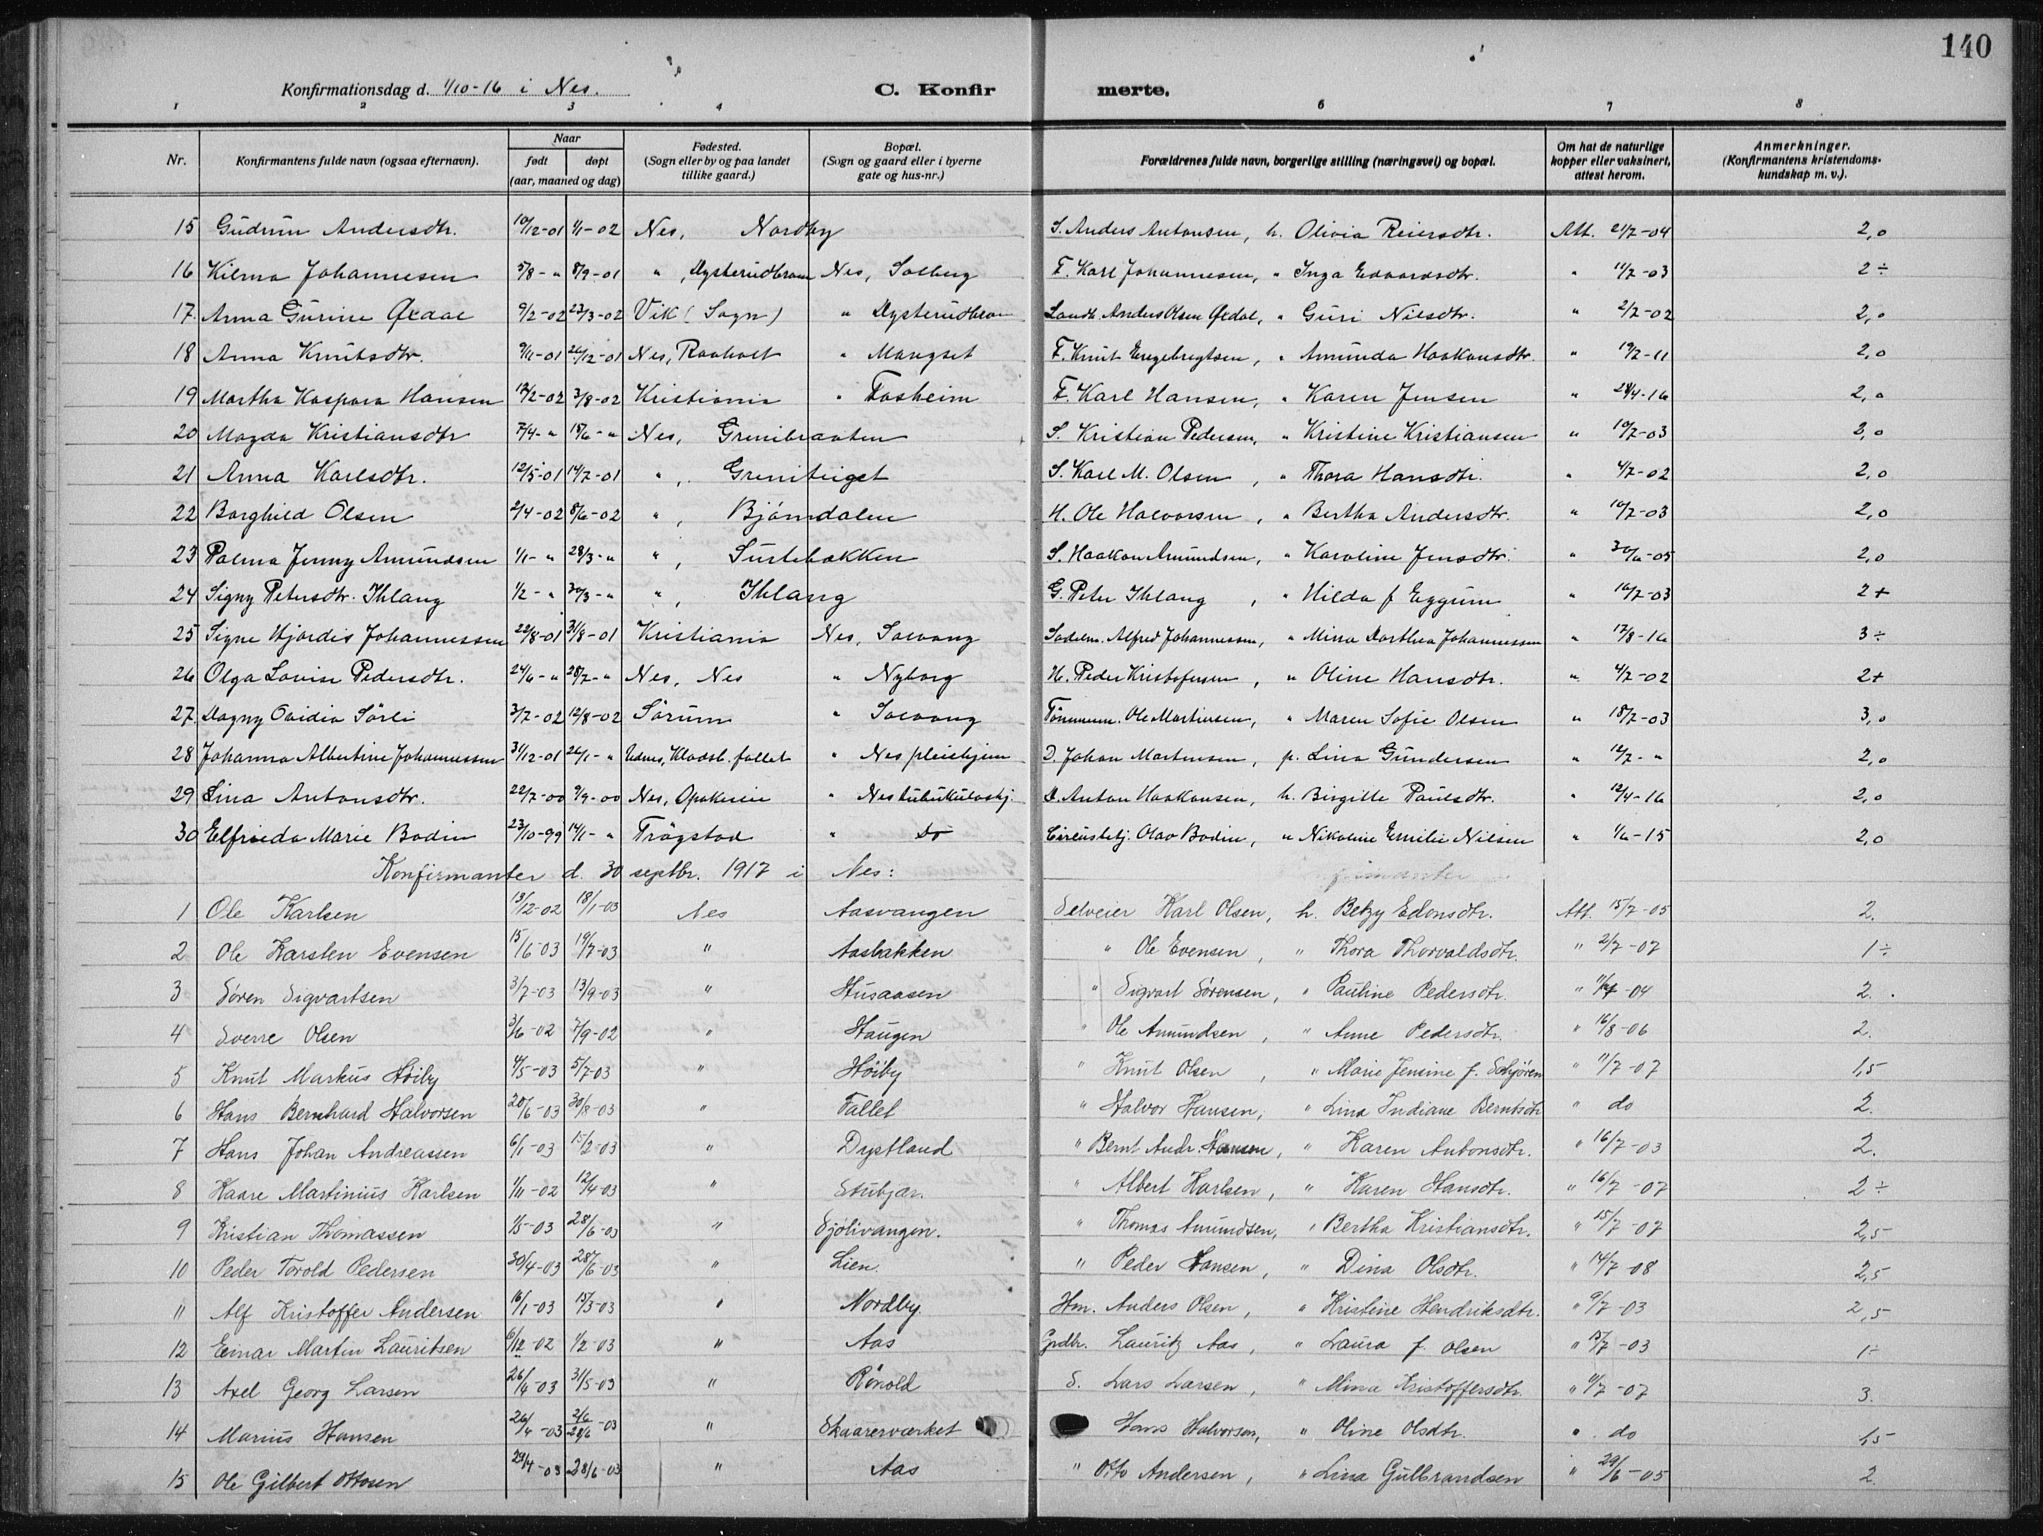 140
Konfirmationsdag d. 1/10-16 i Nes. C. Konfirmerte.
1 2 3 4 6 7 8
Nr. Konfirmantens fulde navn (ogsaa efternavn). Naar født døpt (aar, maaned og dag) Fødested. (Sogn eller by og paa landet tillike gaard.) Bopæl. (Sogn og gaard eller i byerne gate og hus-nr.) Forældrenes fulde navn, borgerlige stilling (næringsvei) og bopæl. Om hat de naturlige kopper eller vaksinert, attest herom. Anmerkninger. (Konfirmantens kristendomskundskap m. v.).
15 Gudrun Andersdtr. 10/12-01 1/1-02 Nes, Nordby S. Anders Antonsen, h. Olivia Reiersdtr. Att. 21/7-04 2,0
16 Wilma Johannesen 5/8-" 8/9-01 ", Dysterudbraae Nes, Solberg F. Karl Johannesen, " Inga Edvardsdtr. " 11/7-03 2÷
17. Anna Gurine Øxdal 9/2-02 23/3-02 Vik (Sogn) " Dysterudbraae Landh. Anders Olsen Øxdal, " Guri Nilsdtr. " 2/7-02 2,0
18 Anna Knutsdtr. 9/11-01 26/12-01 Nes, Raaholt " Mangset F. Knut Engebregtsen, " Amunda Haakonsdtr. " 19/7-11 2,0
19 Martha Kaspara Hansen 12/2-02 3/8-02 Kristiania " Fosheim F. Karl Hansen, " Karen Jensen " 28/4-16 2,0
20 Magda Kristiansdtr 7/4-" 15/6-" Nes, Grenibraaten S. Kristian Pedersen, " Kristine Kristiansen " 10/7-03 2,0
21 Anna Karlsdtr. 12/5-01 14/7-01 ", Greniteiget S. Karl M. Olsen, " Thora Hansdtr. " 4/7-02 2,0
22 Borghild Olsen 2/4-02 8/6-02 ", Bjørndalen H. Ole Halvorsen, " Bertha Andersdtr. " 10/7-03 2,0
23 Palma Jenny Amundsen 1/1-" 28/3-" ", Surtebakken S. Haakon Amundsen, " Karoline Jensdtr. " 30/6-05 2,0
24 Signy Petersdtr. Ihlang 1/2-" 30/3-" ", Ihlang G. Peter Ihlang, " Hilda f Eggum " 16/7-03 2+
25 Signe Hjørdis Johannessen 22/8-01 31/8-01 Kristiania Nes, Solvang Sadelm. Alfred Johannessen, " Mina Dorthea Johannessen " 17/8-16 3÷
26 Olga Lovise Pedersdtr. 24/6-" 28/7-" Nes, Nes " Nyborg H. Peder Kristofersen, " Oline Hansdtr. " 4/7-02 2+
27 Dagny Ovidia Sørli 3/7-02 12/8-02 Sørum " Solvang Tømmerm. Ole Martinsen, " Maren Sofie Olsen " 18/7-03 3,0
28 Johanna Albertine Johannessen 31/12-01 26/1-" Udnes, fallet " Nes pleiehjem D. Johan Martinsen, p. Lina Gundersen " 12/7-" 2,0
29 Lina Antonsdtr. 22/7-00 9/9-00 Nes, Opakereie " Nes tuberkuloshj. D. Anton Haakonsen, h. Birgitte Paulsdtr. " 12/4-16 2,0
30 Elfrieda Marie Bodin 23/10-99 14/1-" Trøgstad " Do Cirkusbetj. Olav Bodin, " Nikoline Emilie Nilsen " 1/6-15 2,0
Konfirmanter d. 30 septbr. 1917 i Nes:
1 Ole Karlsen 13/12-02 18/1-03 Nes Aasvangen Selveier Karl Olsen, h. Betzy Edonsdtr. Att. 15/7-05 2.
2 Ole Karsten Evensen 15/6-03 19/7-03 " Aasbakken " Ole Evensen, " Thora Thorvaldsdtr. " 2/7-07 1÷
3 Søren Sigvartsen 3/7-03 13/9-03 " Husaasen " Sigvart Sørensen, " Pauline Pedersdtr. " 11/7-04 2.
4 Sverre Olsen 3/6-02 7/9-02 " Haugen " Ole Amundsen, " Anne Pedersdtr. " 16/8-06 2.
5 Knut Markus Høiby 4/5-03 5/7-03 " Høiby " Knut Olsen, " Marie Jensine f. Schjøren " 11/7-07 1,5
6 Hans Bernhard Halvorsen 20/6-03 30/8-03 " Fallet " Halvor Hansen, " Lina Indiane Berntsdtr " do 2.
7 Hans Johan Andreassen 6/1-03 15/2-03 " Dystland " Bernt Andr. Hansen, " Karen Antonsdtr. " 16/7-03 2.
8 Kaare Martinius Karlsen 1/11-02 12/4-03 " Stubjær. " Albert Karlsen, " Karen Hansdtr. " 16/7-07 2÷
9 Kristian Thomassen 1/5-03 28/6-03 " Sjølivangen. " Thomas Amundsen, " Bertha Kristiansdtr. " 15/7-07 2,5
10 Peder Torold Pedersen 30/4-03 28/6-03 " Lien. " Peder Hansen, " Dina Olsdtr. " 14/7-08 2,5
11 Alf Kristoffer Andersen 16/1-03 15/3-03 " Nordby. Hm. Anders Olsen, " Kristine Hendriksdtr. " 9/7-03 2,5
12 Einar Martin Lauritsen 6/12-02 1/2-03 " Aas Grdbr. Lauritz Aas, " Laura f. Olsen " 15/7-03 1÷
13 Axel Georg Larsen 26/4-03 31/5-03 " Rønold S. Lars Larsen, " Mina Kristoffersdtr. " 11/7-07 3.
14 Marius Hansen 26/4-03 28/6-03 " Skaarerværket Hans Halvorsen, " Oline Olsdtr. " do 1,5
15 Ole Gilbert Ottosen 29/4-03 28/6-03 " Aas " Otto Andersen, " Lina Gulbrandsen " 29/6-05 2